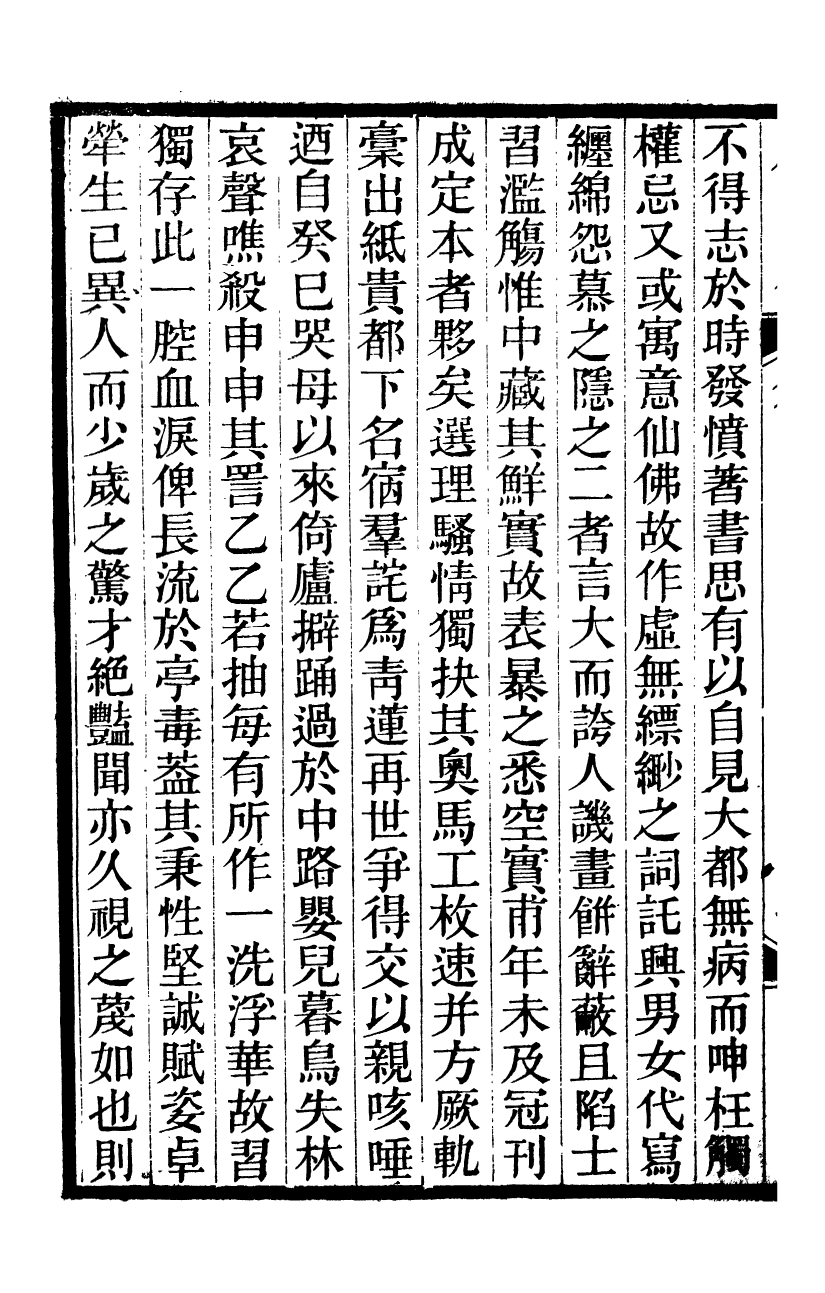 不得志於時發憤著書思有以自見大都無病而呻枉觸
權忌又或寓意仙佛故作虛無縹緲之詞託興男女代寫
纏綿怨慕之隱之二者言大而誇人譏畫餠辭蔽且陷士
習濫觴惟中藏其鮮實故表暴之悉空實甫年未及冠刊
成定本者夥矣選理騷情獨抉其奧馬工枚速并方厥軌
槀出紙貴都下名宿羣詫爲靑蓮再世爭得交以親咳唾
迺自癸巳哭母以來倚廬擗踊過於中路嬰兒暮鳥失林
哀聲噍殺申申其詈乙乙若抽每有所作一洗浮華故習
獨存此一腔血淚俾長流於亭毒葢其秉性堅誠賦姿卓
犖生已異人而少歲之驚才絕豔聞亦久視之蔑如也則